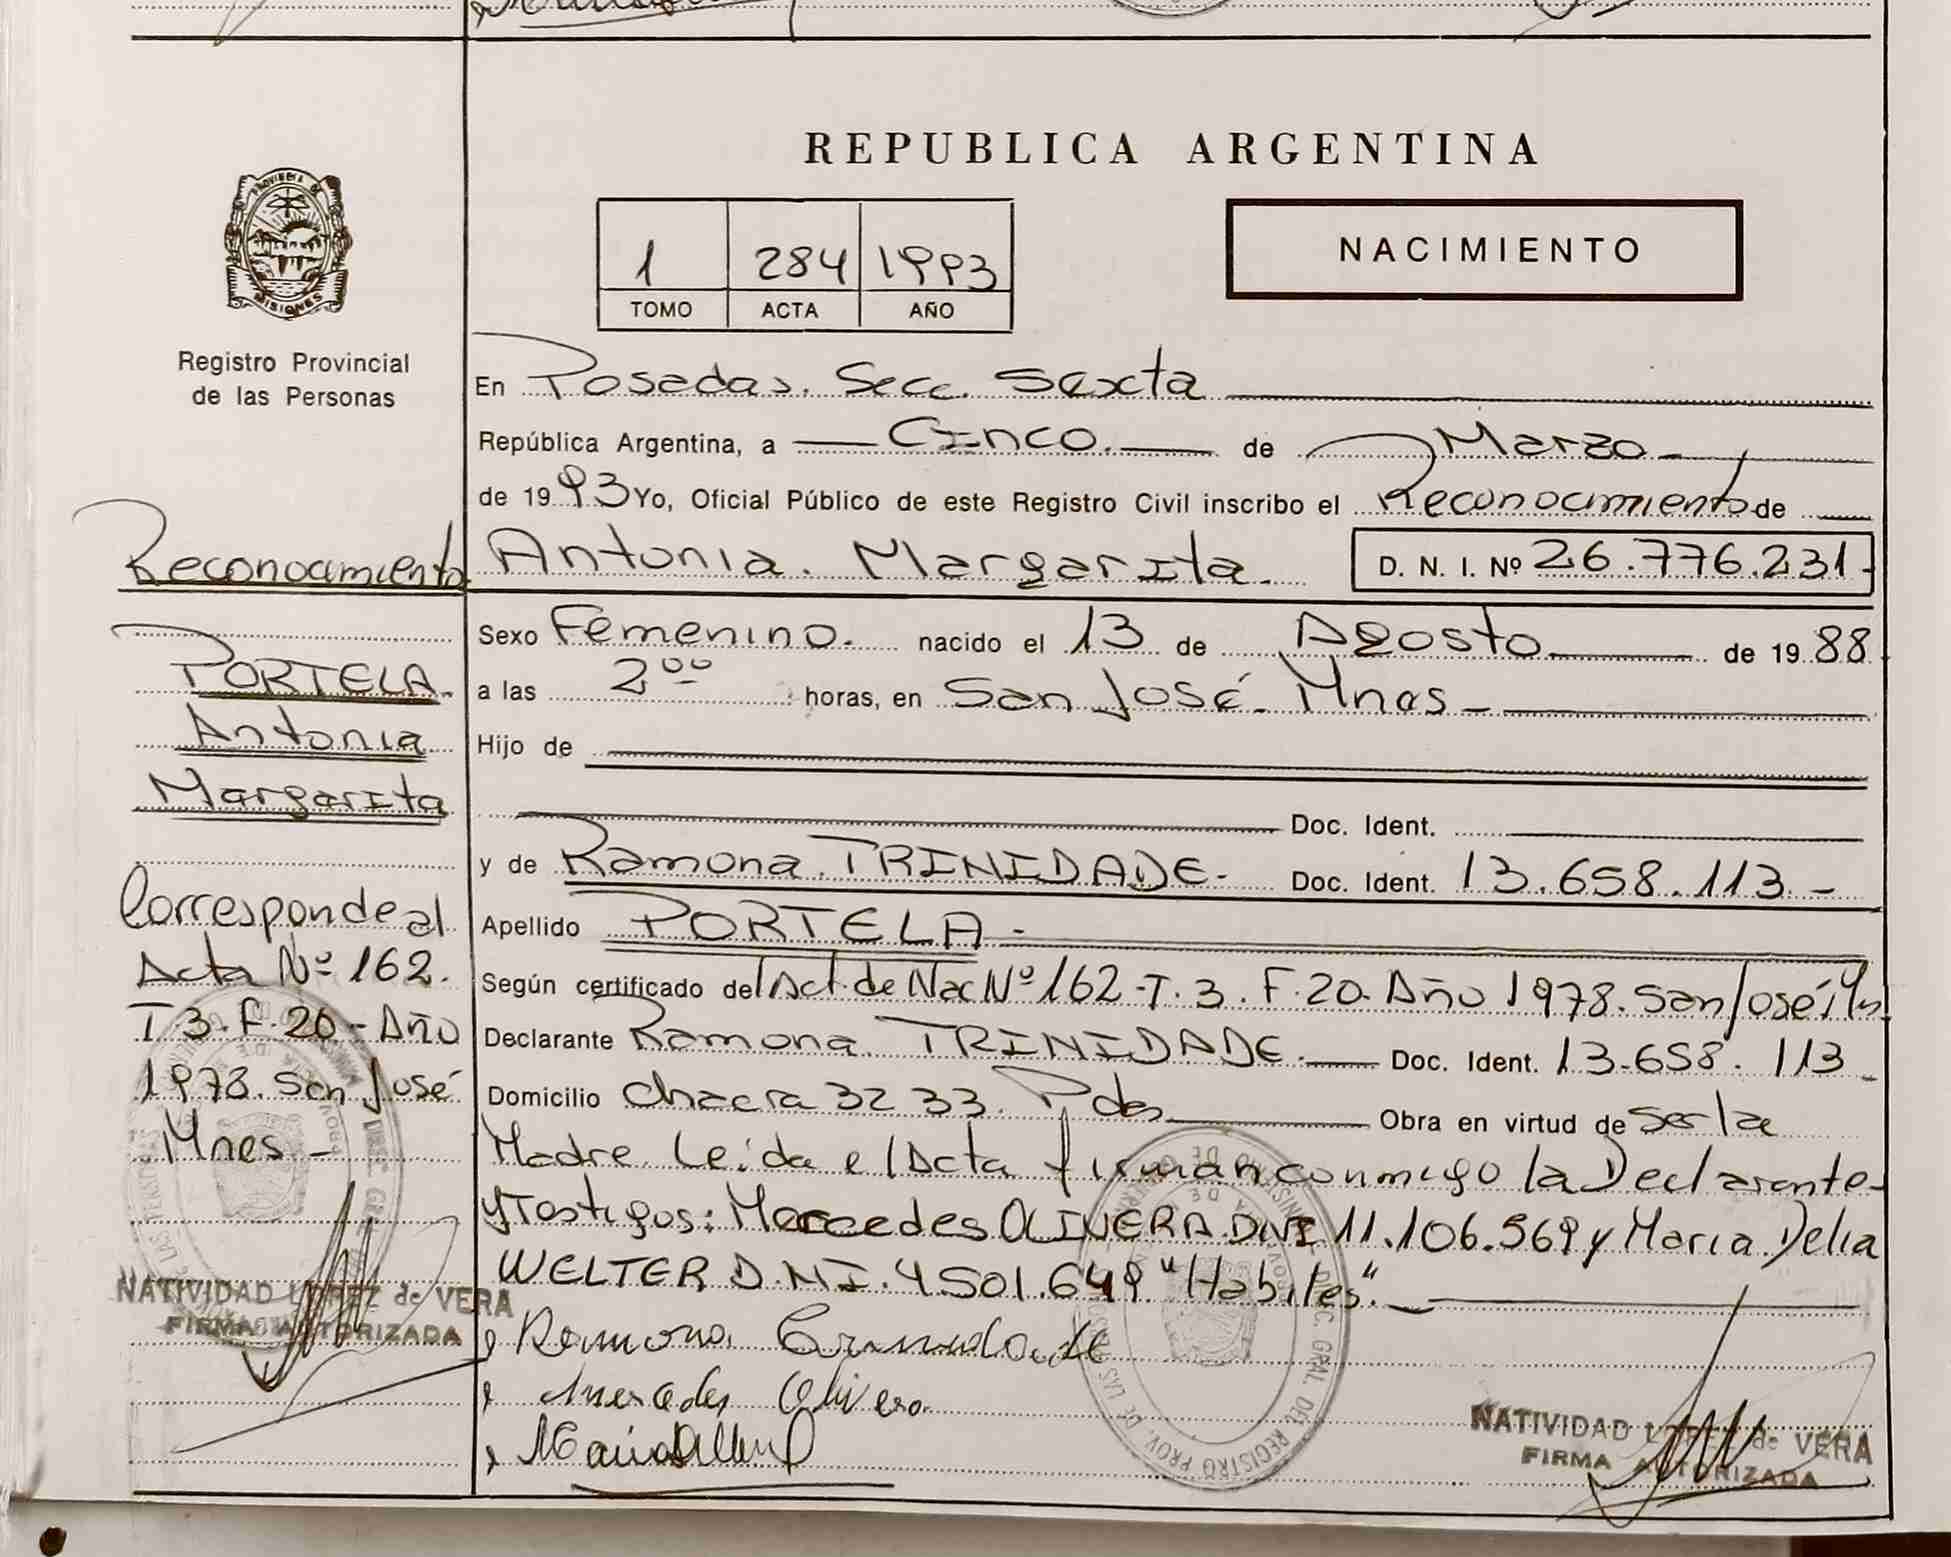 REPUBLICA ARGENTINA
PROVINCIA DE
MISIONES
Registro Provincial
de las Personas
1 284 1993
TOMO ACTA AÑO
NACIMIENTO
En Posadas. Secc. Sexta
República Argentina, a Cinco. de Marzo
de 1993 Yo, Oficial Público de este Registro Civil inscribo el Reconocimiento de
Antonia. Margarita. D. N. I. Nº 26.776.231-
Sexo Femenino. nacido el 13 de Agosto de 1988
a las 2ºº horas, en San José. Mnes -
Hijo de
Doc. Ident.
y de Ramona. TRINIDADE. Doc. Ident. 13.658.113.-
Apellido PORTELA-
Según certificado del Act. de Nac Nº 162-T.3.F.20. Año 1978. San José Mn.
Declarante Ramona TRINIDADE. Doc. Ident. 13-658.113-
Domicilio Chacra 32 33. Pdas Obra en virtud de ser la
Madre. Leída el Acta firman conmigo la Declarante
y Testigos: Mercedes OLIVERA DNI 11.106.569 y María Delia
WELTER D.N.I. 4.501.649 "Habiles".
Ramona Trinidade
Mercedes Olivera
NATIVIDAD LOPEZ de VERA
FIRMA AUTORIZADA
Reconocimiento
PORTELA
Antonia
Margarita
Corresponde al
Acta Nº 162.
T.3.F.20-Año
1978. San José
Mnes-
NATIVIDAD LOPEZ de VERA
FIRMA AUTORIZADA
DIREC. GRAL. DEL REGISTRO PROV. DE LAS